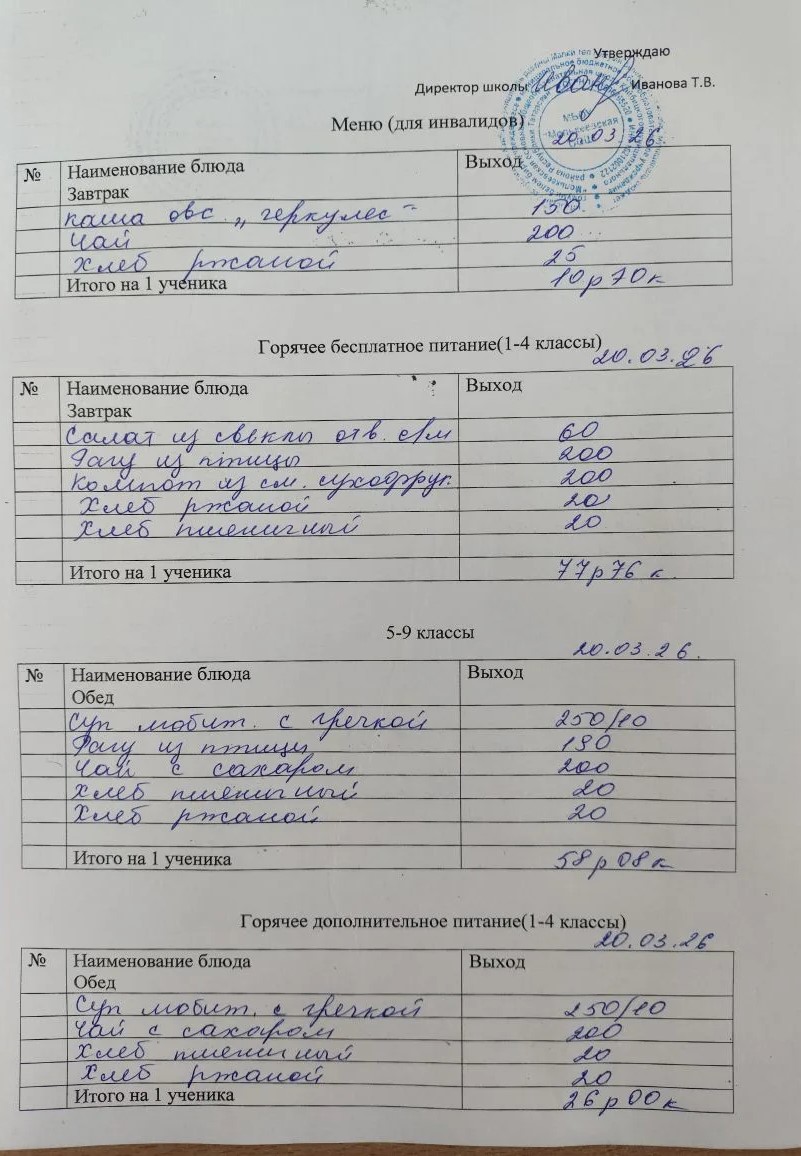 Утверждаю
Директор школы Иванова Т.В.
Меню (для инвалидов)
20.03.26
№ Наименование блюда Выход
Завтрак
каша овс „геркулес" 150
Чай 200
Хлеб ржаной 25
Итого на 1 ученика 10р70к
Горячее бесплатное питание(1-4 классы)
20.03.26
№ Наименование блюда Выход
Завтрак
Салат из свеклы отв. с/м 60
Рагу из птицы 200
Компот из см. сухофрук. 200
Хлеб ржаной 20
Хлеб пшеничный 20
Итого на 1 ученика 77р76 к.
5-9 классы
20.03.26.
№ Наименование блюда Выход
Обед
Суп с гречкой 250/10
Рагу из птицы 190
Чай с сахаром 200
Хлеб пшеничный 20
Хлеб ржаной 20
Итого на 1 ученика 58р08к
Горячее дополнительное питание(1-4 классы)
20.03.26
№ Наименование блюда Выход
Обед
Суп с гречкой 250/10
Чай с сахаром 200
Хлеб пшеничный 20
Хлеб ржаной 20
Итого на 1 ученика 26р00к